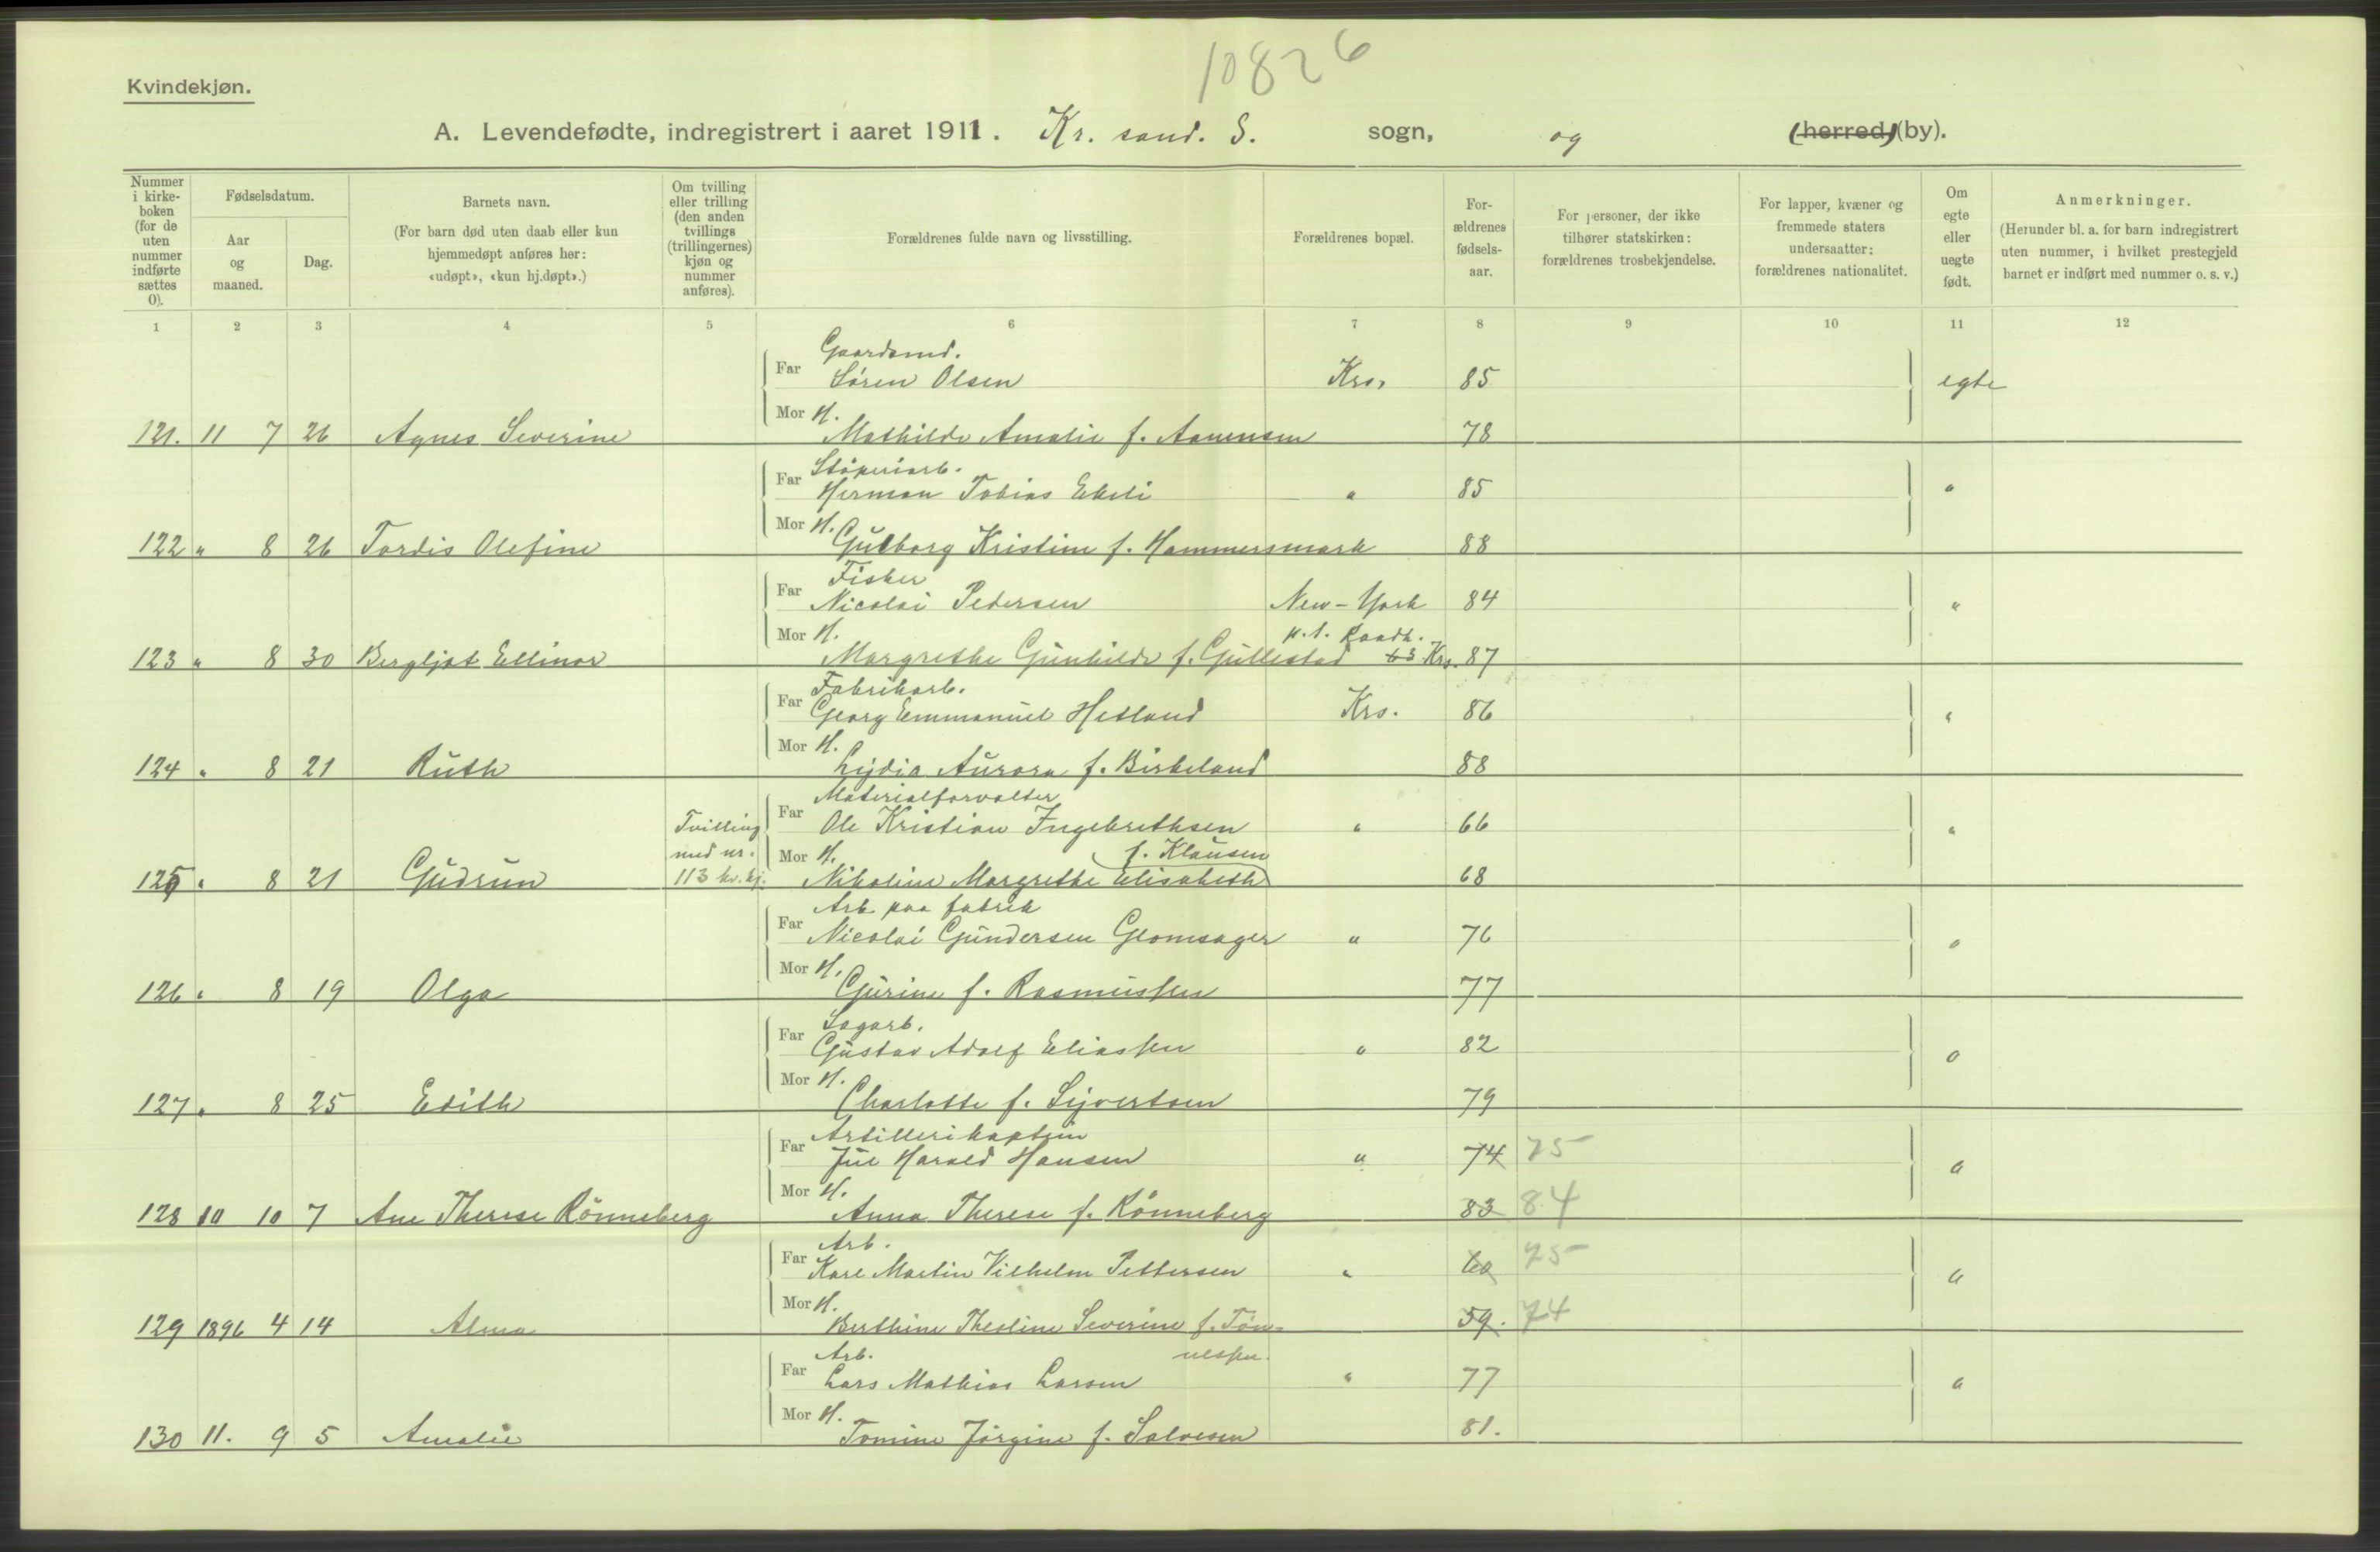 10826
Kvindekjøn.
A. Levendefødte, indregistrert i aaret 1911. Kr. sand. S. sogn, og (herred) (by).
Nummer i kirkeboken (for de uten nummer indførte sættes 0).
Fødselsdatum.
Aar og maaned.
Dag.
Barnets navn.
(For barn død uten daab eller kun hjemmedøpt anføres her: «udøpt», «kun hj.døpt».)
Om tvilling eller trilling (den anden tvillings (trillingernes) kjøn og nummer anføres).
Forældrenes fulde navn og livsstilling.
Forældrenes bopæl.
Forældrenes fødselsaar.
For personer, der ikke tilhører statskirken: forældrenes trosbekjendelse.
For lapper, kvæner og fremmede staters undersaatter: forældrenes nationalitet.
Om egte eller uegte født.
Anmerkninger.
(Herunder bl. a. for barn indregistrert uten nummer, i hvilket prestegjeld barnet er indført med nummer o. s. v.)
1 2 3 4 5 6 7 8 9 10 11 12
Gaardsmd.
Far Søren Olsen Krs. 85 egte
Mor H.
121. 11 7 26 Agnes Severine Mathilde Amalie f. Aanensen 78
Støperiarb.
Far Herman Tobias Ekeli " 85 "
Mor H.
122 " 8 26 Tordis Olefine Gulborg Kristine f. Hammersmark 88
Fisker
Far Nicolai Pedersen New-York 84 "
Mor H. p.t. Raadh.
123 " 8 30 Bergljot Ellinor Margrethe Gunhilde f. Gullestad 63 Krs. 87
Fabrikarb.
Far Georg Emmanuel Hetland Krs. 86 "
Mor H.
124 " 8 21 Ruth Lydia Aurora f. Birkeland 88
Materialforvalter
Tvilling Far Ole Kristian Ingebrethsen " 66 "
med nr. Mor H. f. Klausen
125 " 8 21 Gudrun 113 kv.kj. Nikoline Margrethe Elisabeth 68
Arb. paa fabrik
Far Nicolai Gundersen Glomsager " 76 "
Mor H.
126 " 8 19 Olga Gurine f. Rasmussen 77
Sagarb.
Far Gustav Adolf Eliassen " 82 "
Mor H.
127 " 8 25 Edith Charlotte f. Syvertsen 79
Artillerikaptein
Far Jul Harald Hansen " 74 75 "
Mor H.
128 10 10 7 Ane Therese Rönneberg Anna Therese f. Rönneberg 83 84
Arb.
Far Karl Martin Vilhelm Pettersen " 60 75 "
Mor H.
129 1896 4 14 Alma Berthine Thesline Severine f. Tøn- 59. 74
Arb. nessen.
Far Lars Mathias Larsen " 77 "
Mor H.
130 11. 9 5 Amalie Tomine Jørgine f. Salvesen 81.